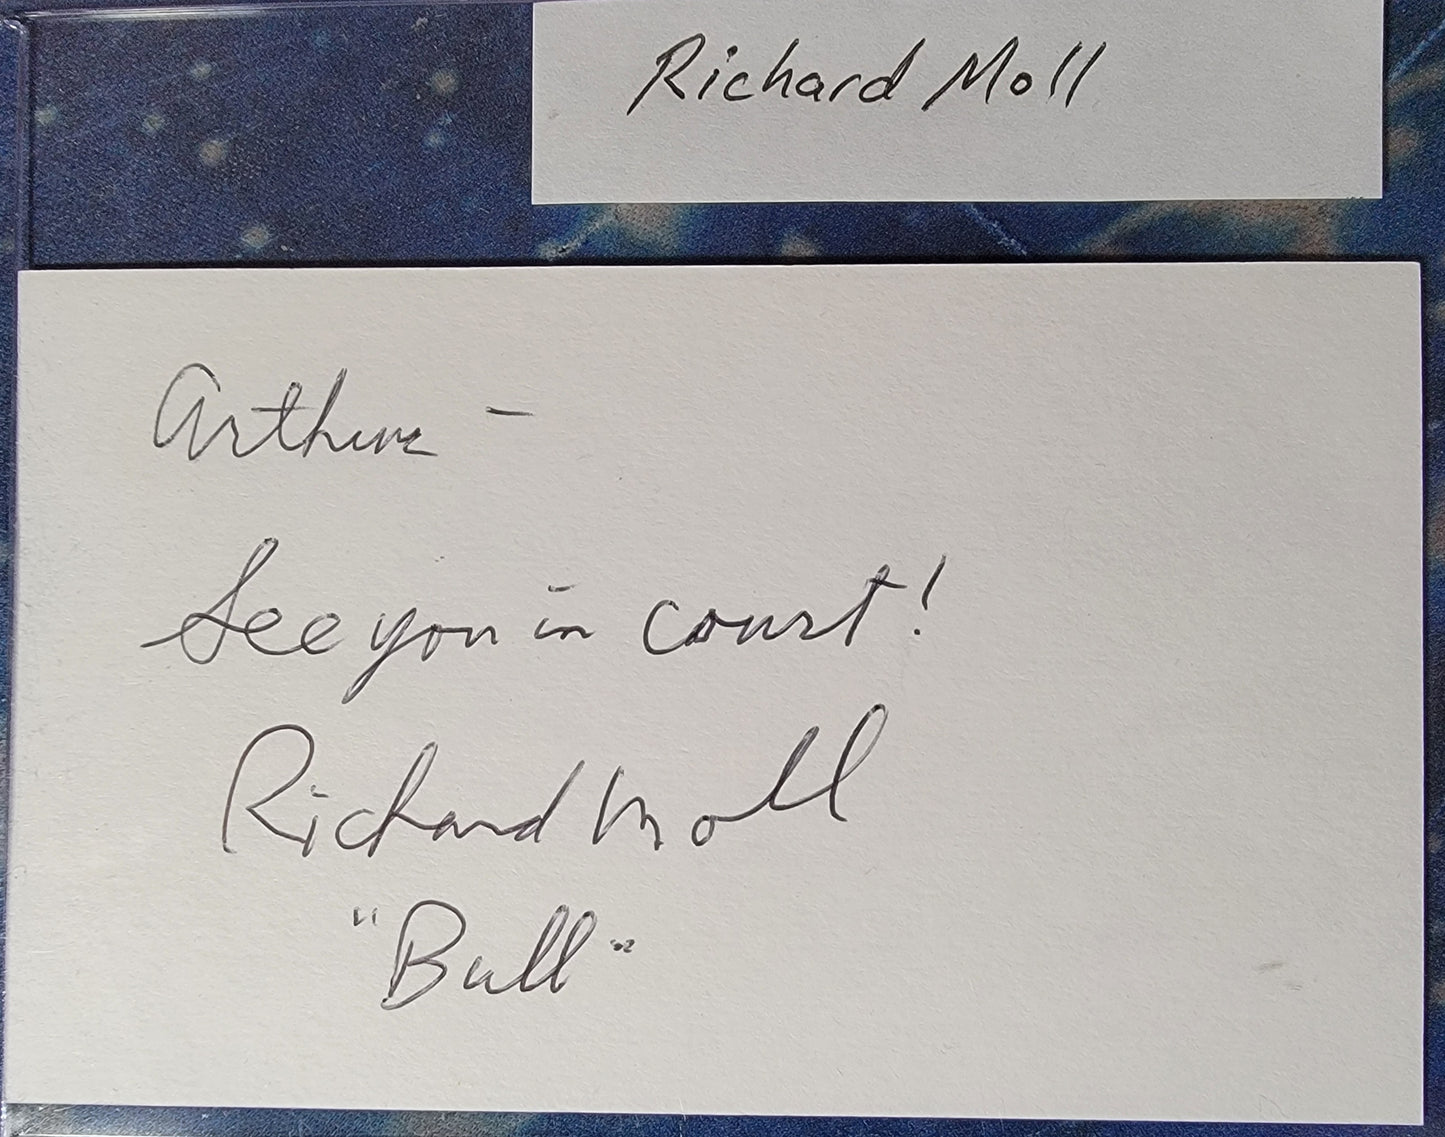 Richard Moll
Arthur –
See you in court!
Richard Moll
"Bull"